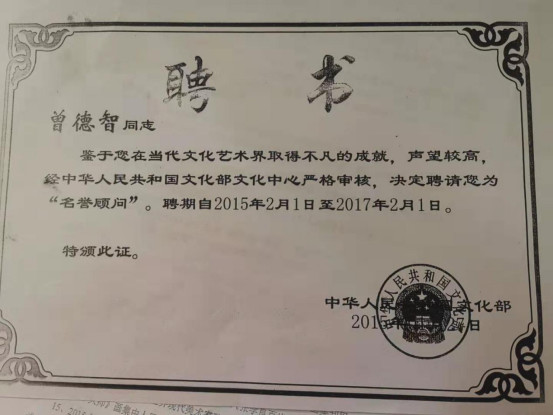 聘 书
曾德智同志
鉴于您在当代文化艺术界取得不凡的成就，声望较高，
经中华人民共和国文化部文化中心严格审核，决定聘请您为
“名誉顾问”。聘期自2015年2月1日至2017年2月1日。
特颁此证。
中华人民共和国文化部
中华人民 国文化部
2015年 日